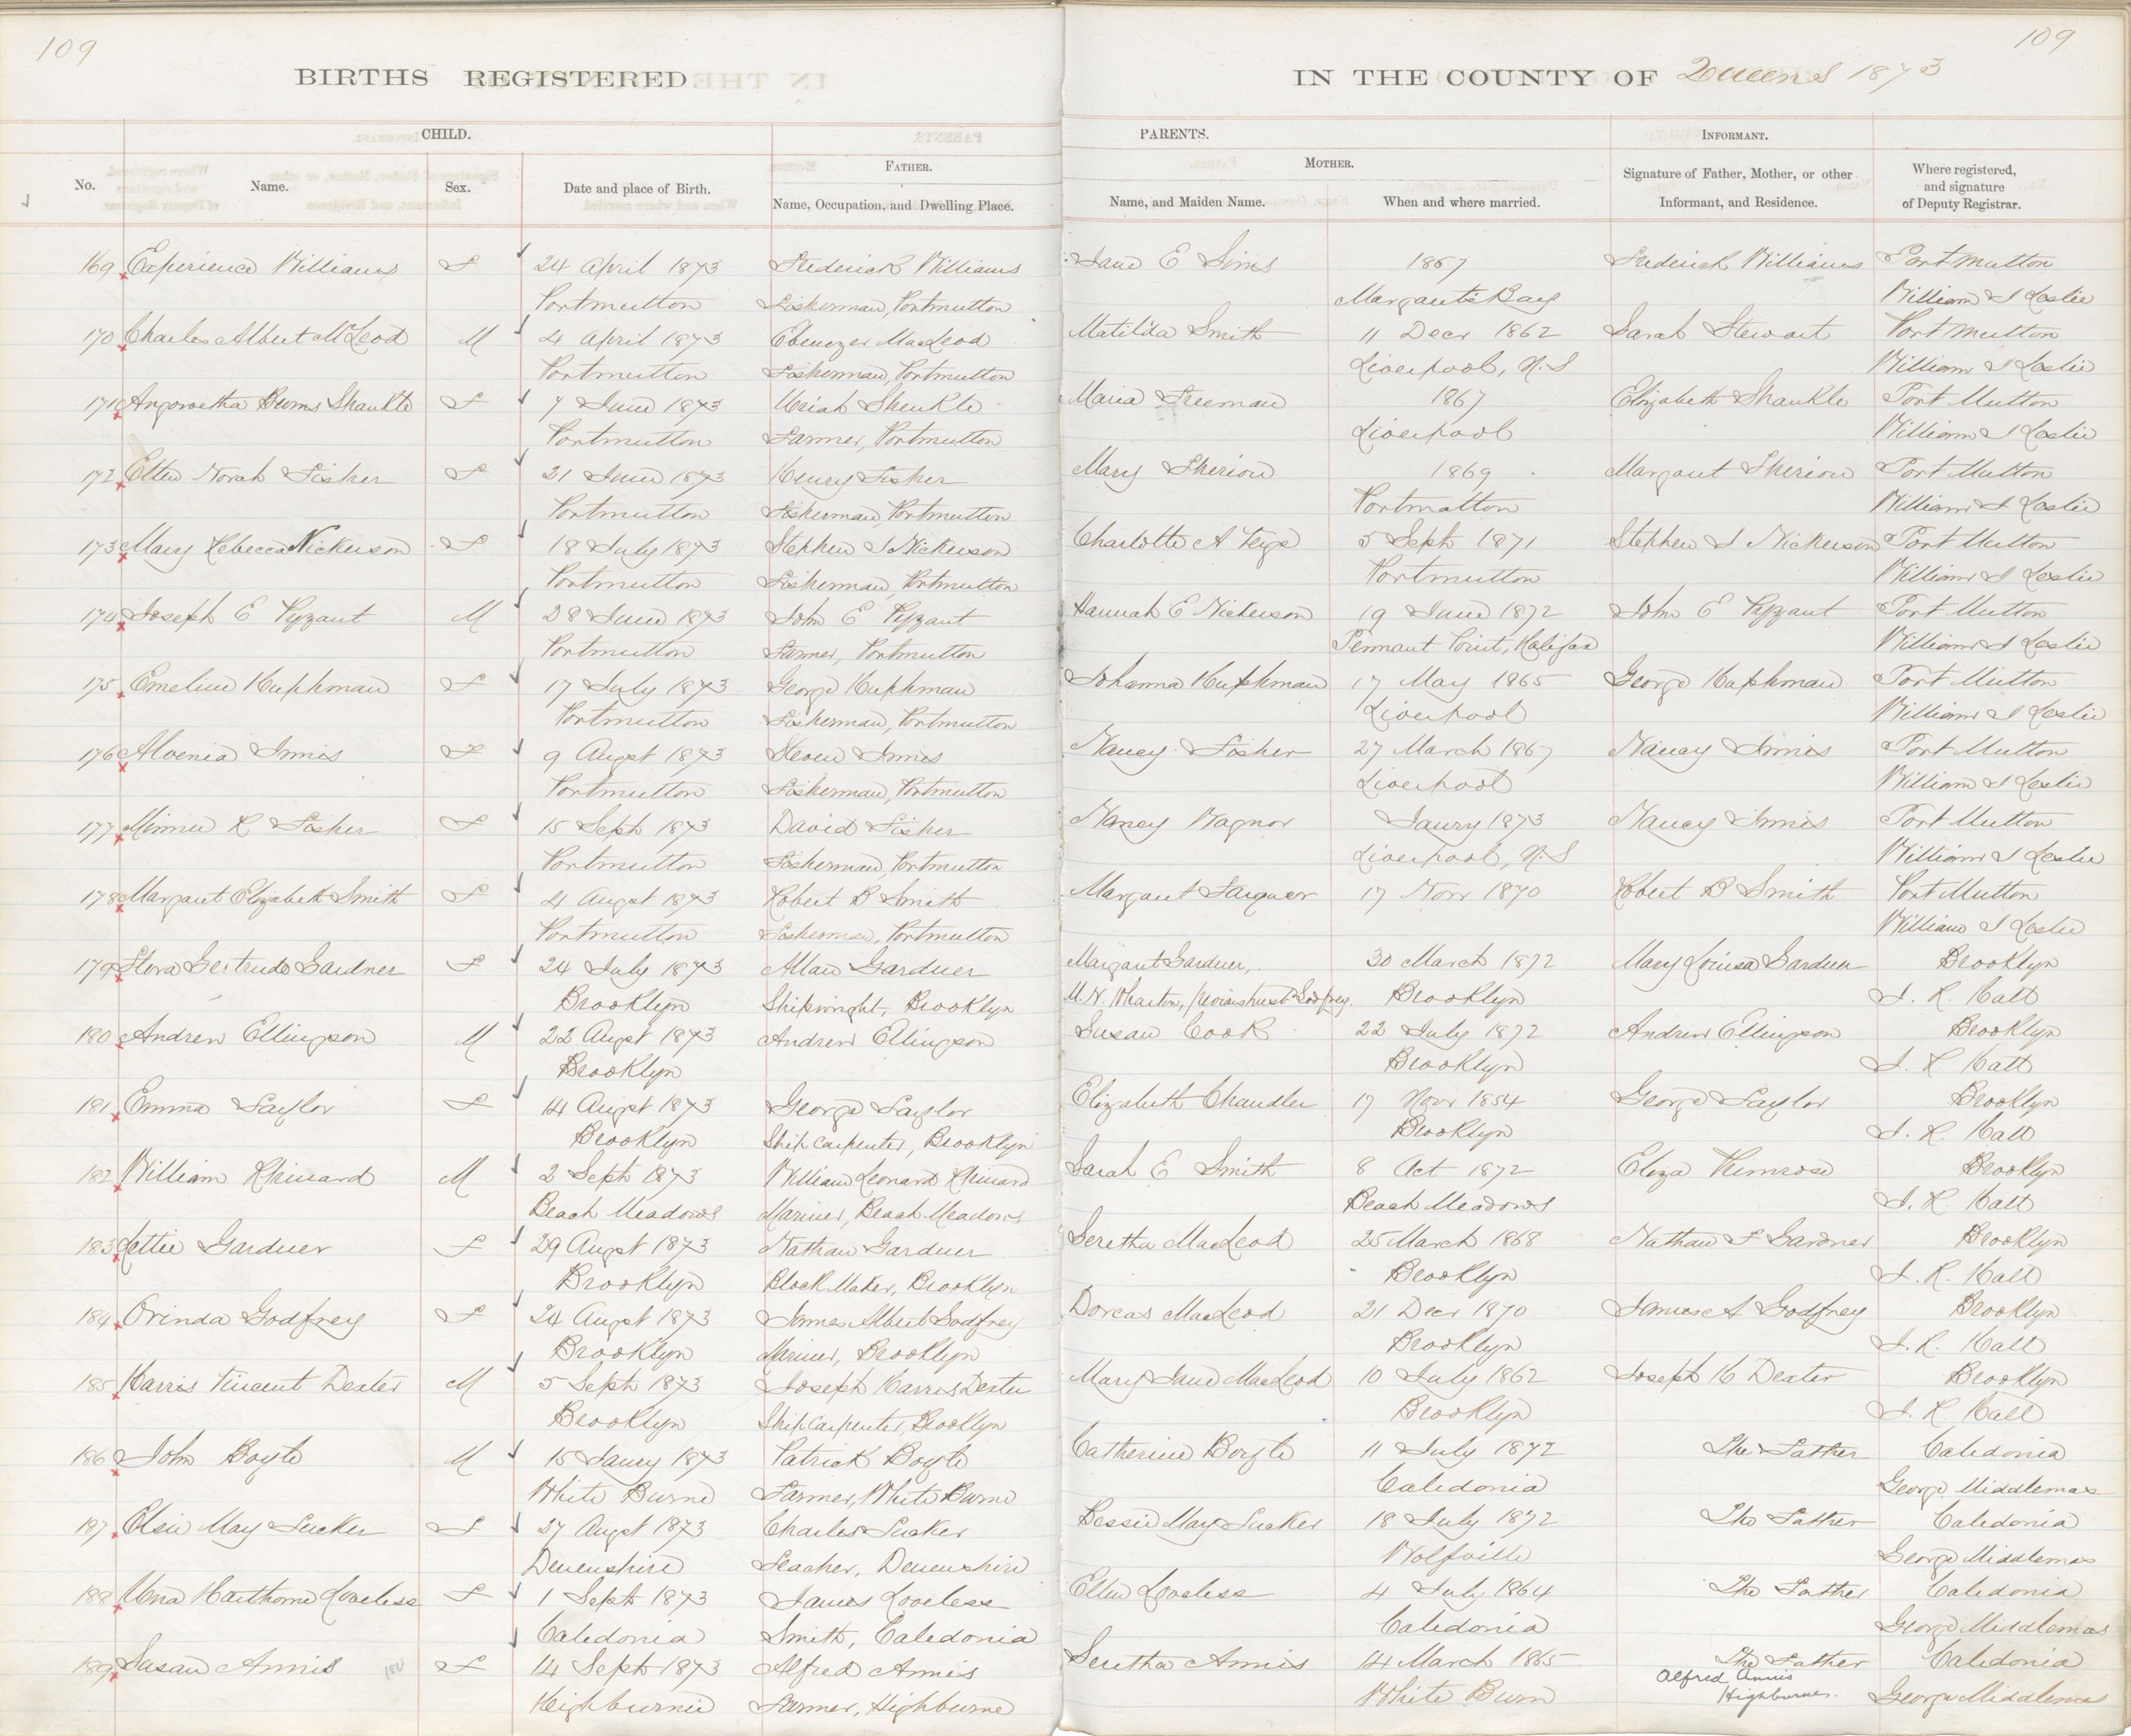 109
109
BIRTHS REGISTERED
IN THE COUNTY OF Queens 1873
CHILD.
PARENTS.
INFORMANT.
FATHER.
MOTHER.
No.
Name.
Sex.
Date and place of Birth.
Name, Occupation, and Dwelling Place.
Name, and Maiden Name.
When and where married.
Signature of Father, Mother, or other Informant, and Residence.
Where registered, and signature of Deputy Registrar.
169 Experience Williams F 24 April 1873 Frederick Williams Jane E Sims 1867 Frederick Williams Port Mutton
Portmutton Fisherman, Portmutton Margarets Bay William J Leslie
170 Charles Albert McLeod M 4 April 1873 Ebenezer MacLeod Matilda Smith 11 Decr 1862 Sarah Stewart Port Mutton
Portmutton Fisherman, Portmutton Liverpool, N.S William J Leslie
171 Burns Shankle F 7 June 1873 Uriah Shenkle Maria Freeman 1867 Elizabeth Shankle Port Mutton
Portmutton Farmer, Portmutton Liverpool William J Leslie
172 Ellen Norah Fisher F 21 June 1873 Henry Fisher Mary Sherion 1869 Margaret Sherion Port Mutton
Portmutton Fisherman, Portmutton Portmatton William J Leslie
173 Mary Rebecca Nickerson F 18 July 1873 Stephen J Nickerson Charlotte A 5 Sept 1871 Stephen J Nickerson Port Mutton
Portmutton Fisherman, Portmutton Portmutton William J Leslie
174 Joseph E Pyzant M 28 June 1873 John E Pyzant Hannah E Nickerson 19 June 1872 John E Pyzant Port Mutton
Portmutton Farmer, Portmutton Pennant Point, Halifax William J Leslie
175 Emeline Huphman F 17 July 1873 George Huphman Johanna Huphman 17 May 1865 George Huphman Port Mutton
Portmutton Fisherman, Portmutton Liverpool William J Leslie
176 Alvenia Innis F 9 Augst 1873 Steven Innis Nancy Fisher 27 March 1867 Nancy Innis Port Mutton
Portmutton Fisherman, Portmutton Liverpool William J Leslie
177 Minnie R Fisher F 15 Sept 1873 David Fisher Nancy Wagnor Janry 1873 Nancy Innis Port Mutton
Portmutton Fisherman, Portmutton Liverpool, N.S William J Leslie
178 Margaret Elizabeth Smith F 21 Augst 1873 Robert B Smith Margaret 17 Novr 1870 Robert B Smith Port Mutton
Portmutton Fisherman, Portmutton William J Leslie
179 Flora Gertrude Gardner F 24 July 1873 Allan Gardner Margaret Gardner, 30 March 1872 Mary Louisa Gardner Brooklyn
Brooklyn Shipwright, Brooklyn M.N. Wharton, Godfrey. Brooklyn J. R. Hall
180 Andrew Ellingson M 22 Augst 1873 Andrew Ellingson Susan Cook 22 July 1872 Andrew Ellingson Brooklyn
Brooklyn Brooklyn J. R. Hall
181 Emma Taylor F 14 Augst 1873 George Taylor Elizabeth Chandler 17 Novr 1854 George Taylor Brooklyn
Brooklyn Ship Carpenter, Brooklyn Brooklyn J. R. Hall
182 William Rhinard M 2 Sept 1873 William Leonard Rhinard Sarah E Smith 8 Oct 1872 Eliza Primrose Brooklyn
Beach Meadows Mariner, Beach Meadows Beach Meadows J. R. Hall
183 Lettie Gardner F 29 Augst 1873 Nathan Gardner Seretha MacLeod 25 March 1868 Nathan F Gardner Brooklyn
Brooklyn Block Maker, Brooklyn Brooklyn J. R. Hall
184 Orinda Godfrey F 24 Augst 1873 James Albert Godfrey Dorcas MacLeod 21 Decr 1870 James A Godfrey Brooklyn
Brooklyn Mariner, Brooklyn Brooklyn J. R. Hall
185 Harris Vincent Dexter M 5 Sept 1873 Joseph Harris Dexter Mary Jane MacLeod 10 July 1862 Joseph H Dexter Brooklyn
Brooklyn Ship Carpenter, Brooklyn Brooklyn J. R. Hall
186 John Boyle M 15 Janry 1873 Patrick Boyle Catherine Boyle 11 July 1872 The Father Caledonia
White Burne Farmer, White Burne Caledonia George Middlemas
187 Elsie May Tucker F 27 Augst 1873 Charles Tucker Bessie May Tucker 18 July 1872 The Father Caledonia
Devenshire Teacher, Devenshire Wolfville George Middlemas
188 Una Hawthorne Loveless F 1 Sept 1873 James Loveless Ellen Loveless 4 July 1864 The Father Caledonia
Caledonia Smith, Caledonia Caledonia George Middlemas
189 Susan Annis F 14 Sept 1873 Alfred Annis Seretha Annis 14 March 1865 The Father Caledonia
Alfred Annis
Highburnie Farmer, Highburne White Burn Highburne. George Middlemas